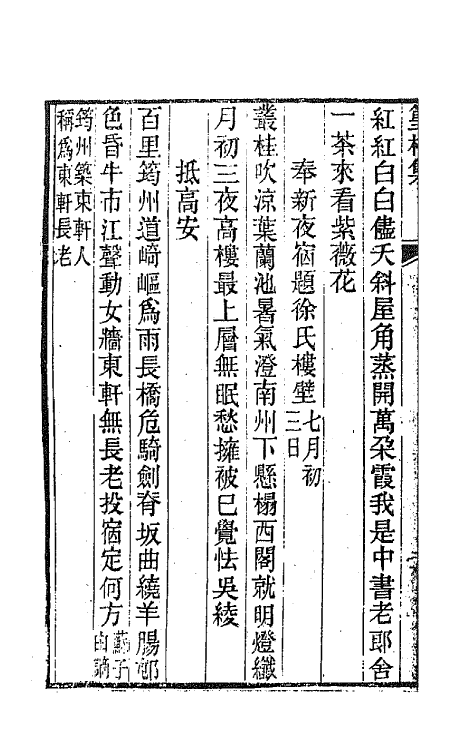 紅紅白白儘夭斜屋角蒸開萬朶霞我是中書老郎舍
一茶來看紫薇花
奉新夜宿題徐氏樓壁七月初三日
叢桂吹涼葉蘭池暑氣澄南州下懸榻西閣就明燈纖
月初三夜高樓最上層無眠愁擁被已覺怯吳綾
抵高安
百里筠州道崎嶇爲雨長橋危騎劍脊坂曲繞羊腸郵
色昏牛市江聲動女牆東軒無長老投宿定何方蘇子由謫
筠州築東軒人稱爲東軒長老